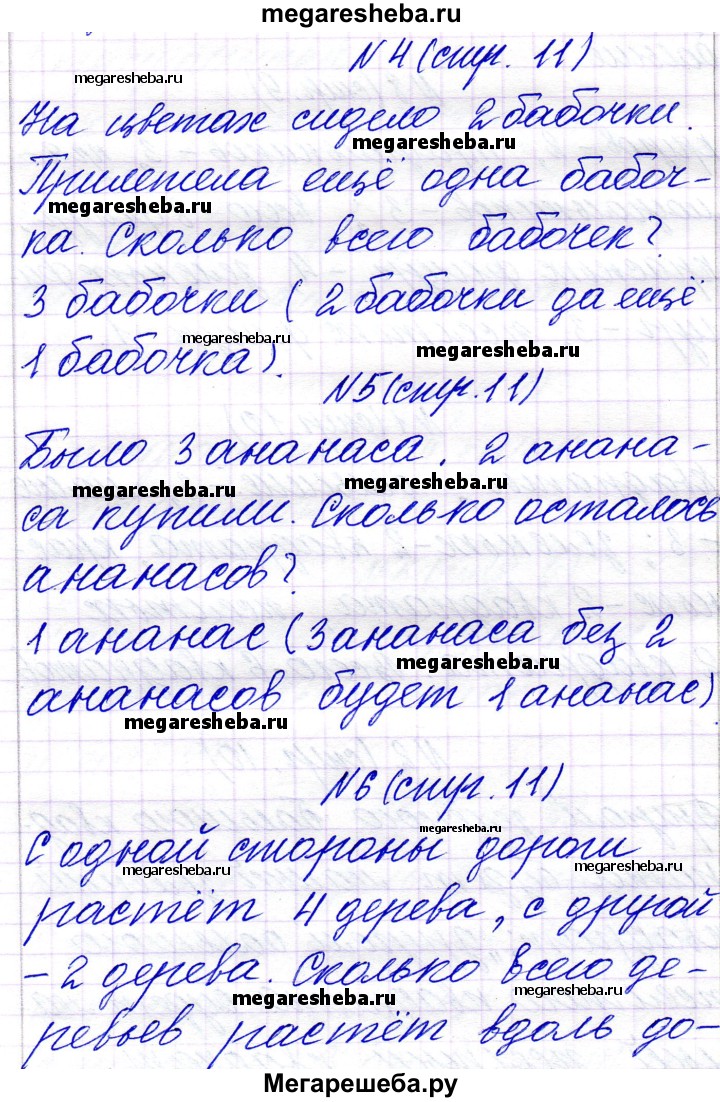 megaresheba.ru
N4 (стр. 11)
megaresheba.ru
На цветах сидело 2 бабочки.
megaresheba.ru
Прилетела ещё одна бабоч-
megaresheba.ru
ка. Сколько всего бабочек?
3 бабочки ( 2 бабочки да ещё
megaresheba.ru
megaresheba.ru
1 бабочка).
N5 (стр. 11)
Было 3 ананаса. 2 анана-
megaresheba.ru
megaresheba.ru
са купили. Сколько осталось
ананасов?
1 ананас (3 ананаса без 2
megaresheba.ru
ананасов будет 1 ананас)
megaresheba.ru
N6 (стр. 11)
megaresheba.ru
С одной стороны дороги
megaresheba.ru
megaresheba.ru
растёт 4 дерева, с другой
- 2 дерева. Сколько всего де-
megaresheba.ru
megaresheba.ru
ревьев растёт вдоль до-
megaresheba.ru
Мегарешеба.ру